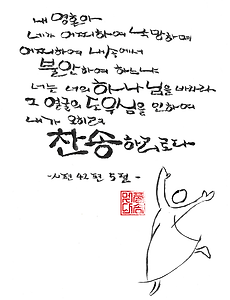 내 영혼아
네가 어찌하여 낙망하며
어찌하여 내 속에서
불안하여 하느냐
너는 너의 하나님을 바라라
그 얼굴의 도우심을 인하여
내가 오히려
찬송하리로다
-시편 42편 5절-